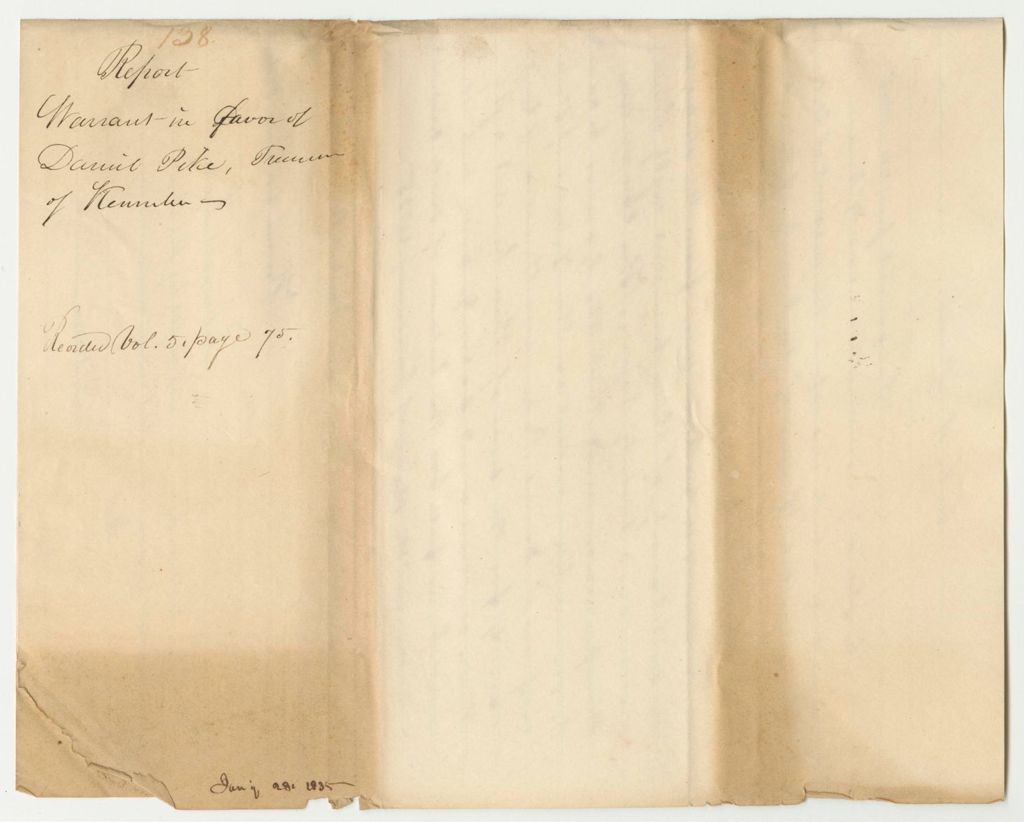 138
Report
Warrant in favor of
Daniel Pike, Treasurer
of Kennebec
Recorded Vol. 5. page 75.
Jan'y 28. 1835